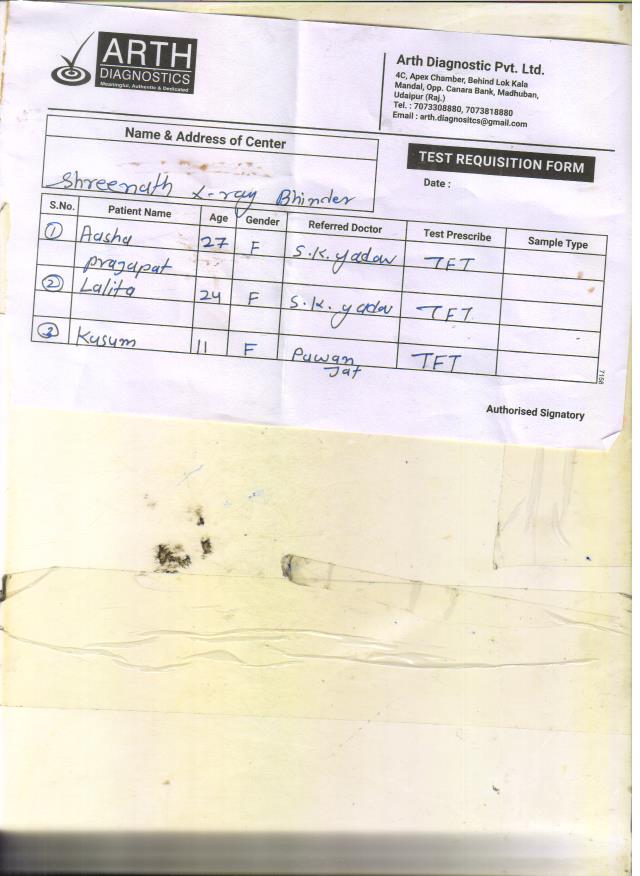 ARTH
DIAGNOSTICS
Meaningful, Authentic & Dedicated
Arth Diagnostic Pvt. Ltd.
4C, Apex Chamber, Behind Lok Kala
Mandal, Opp. Canara Bank, Madhuban,
Udaipur (Raj.)
Tel. : 7073308880, 7073818880
Email : arth.diagnositcs@gmail.com
Name & Address of Center
TEST REQUISITION FORM
Shreenath X-ray Bhinder
Date :
S.No. Patient Name Age Gender Referred Doctor Test Prescribe Sample Type
1 Aasha 27 F S.K. yadav TFT
prajapat
2 Lalita 24 F S.K. yadav TFT
3 Kusum 11 F Pawan TFT
Jat
7158
Authorised Signatory